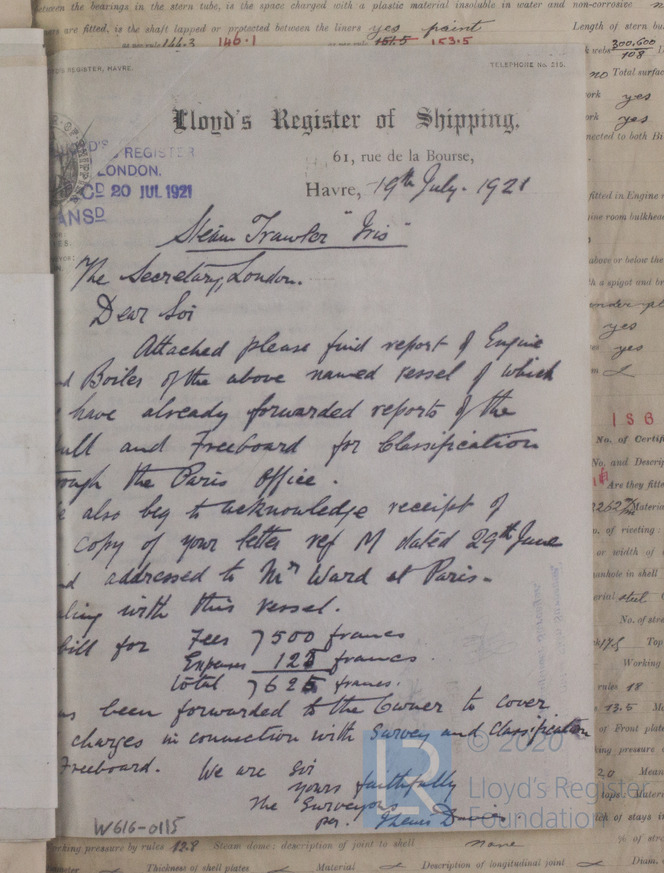 between the bearings in the stern tube, is the space charged with a plastic material insoluble in water and non-corrosive
are fitted, is the shaft lapped or protected between the liners yes paint
Length of stern
146.3 146.1 153.5
300.600
108
no Total surfa
yes
yes
nected to both Bi
fitted in Engine
ine room bulkhea
above or below the
a spigot and
yes
yes
I S B
No. of Certif
No. and Descrip
Are they fitte
of riveting
or width of
anhole in shell
erial steel
No. of stre
Working
rules 18
13.5
of Front plate
king pressure
2.0
ich of stays in
'S REGISTER, HAVRE.
TELEPHONE No. 215.
Lloyd's Register of Shipping,
61, rue de la Bourse,
Havre, 19th July. 1921
D'S REGISTER
LONDON.
CD 20 JUL 1921
ANSD
Steam Trawler "Iris"
The Secretary, London.
Dear Sir
Attached please find report of Engine
d Boilers of the above named vessel of which
have already forwarded reports of the
ull and Freeboard for Classification
rough the Paris Office.
e also beg to acknowledge receipt of
copy of your letter ref M dated 29th June
d addressed to Mr Ward at Paris-
ling with this vessel.
bill for Fees 7500 francs
Expenses 125 francs.
total 7625 francs.
as been forwarded to the Owner to cover
charges in connection with Survey and Classification
Freeboard. We are Sir
yours faithfully
The Surveyors
per.
© 2020
LR
Lloyd's Register
Foundation
W616-0115
rking pressure by rules 12.8 Steam dome: description of joint to shell none
Thickness of shell plates Material Description of longitudinal joint Diam.